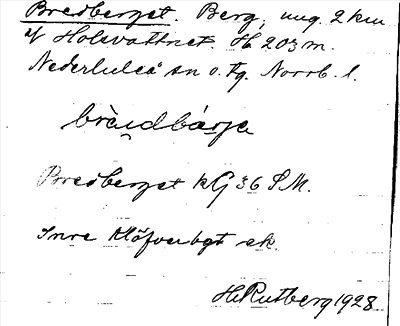 Bredberget. Berg, ung. 2 km
af Holsvattnet. H. 203 m.
Nederluleå sn o. tg. Norrb. l.
brèɩdbárja
Bredberget kG 36 S.M.
Inre Klöfverbgt ek.
H. Rutberg 1928